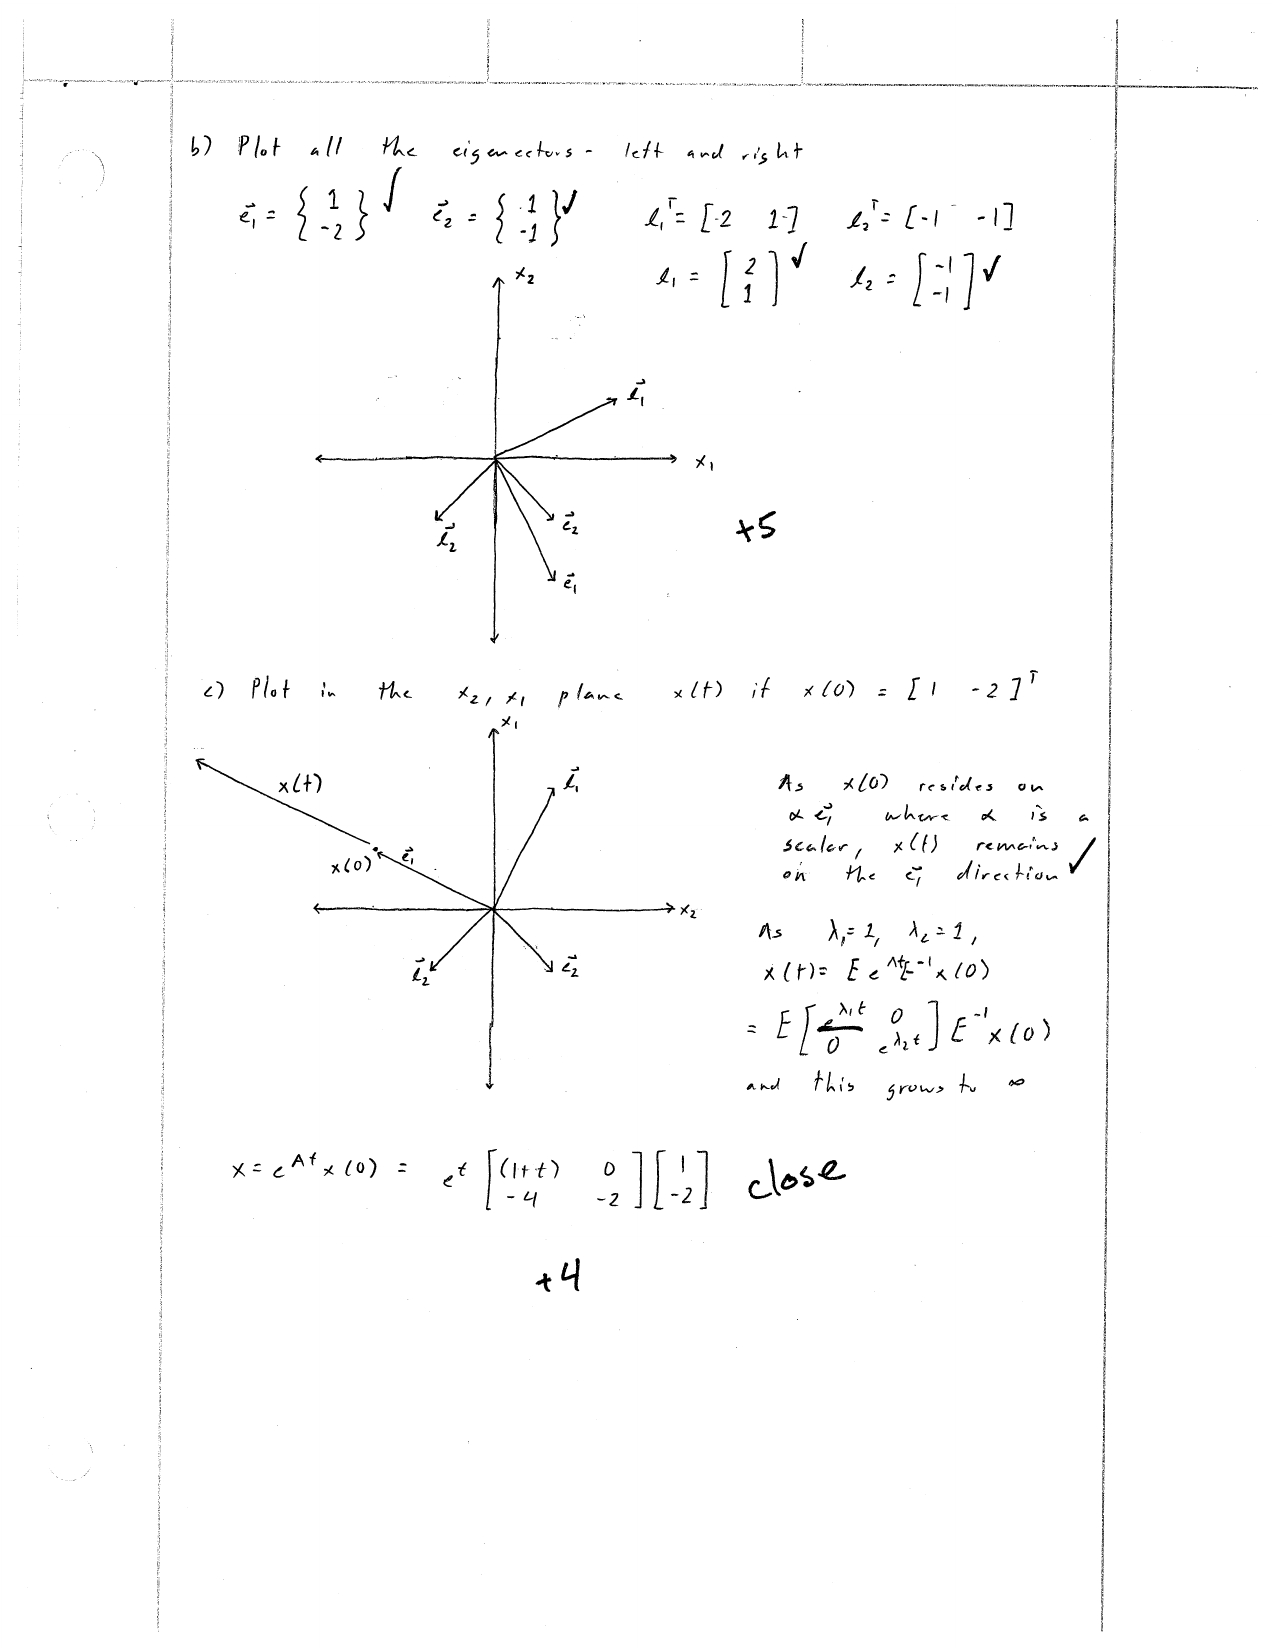 b) Plot all the eigenectors - left and right
e⃗₁ = { 1 -2 } ✓ e⃗₂ = { 1 -1 } ✓ l₁ᵀ = [2 1] l₂ᵀ = [-1 -1]
l₁ = [ 2 1 ] ✓ l₂ = [ -1 -1 ] ✓
x₂
l⃗₁
x₁
l⃗₂ e⃗₂
+5
e⃗₁
c) Plot in the x₂, x₁ plane x(t) if x(0) = [1 -2]ᵀ
x₁
x(t) l⃗₁
As x(0) resides on
α e⃗₁ where α is a
scalar, x(t) remains
x(0) e⃗₁
on the e⃗₁ direction ✓
x₂
As λ₁=2, λ₂=1,
l⃗₂ e⃗₂
x(t) = E e^Λt E⁻¹ x(0)
= E [ e^λ₁t 0 0 e^λ₂t ] E⁻¹ x(0)
and this grows to ∞
x = e^At x(0) = e^t [ (1+t) 0 -4 -2 ] [ 1 -2 ] close
+4